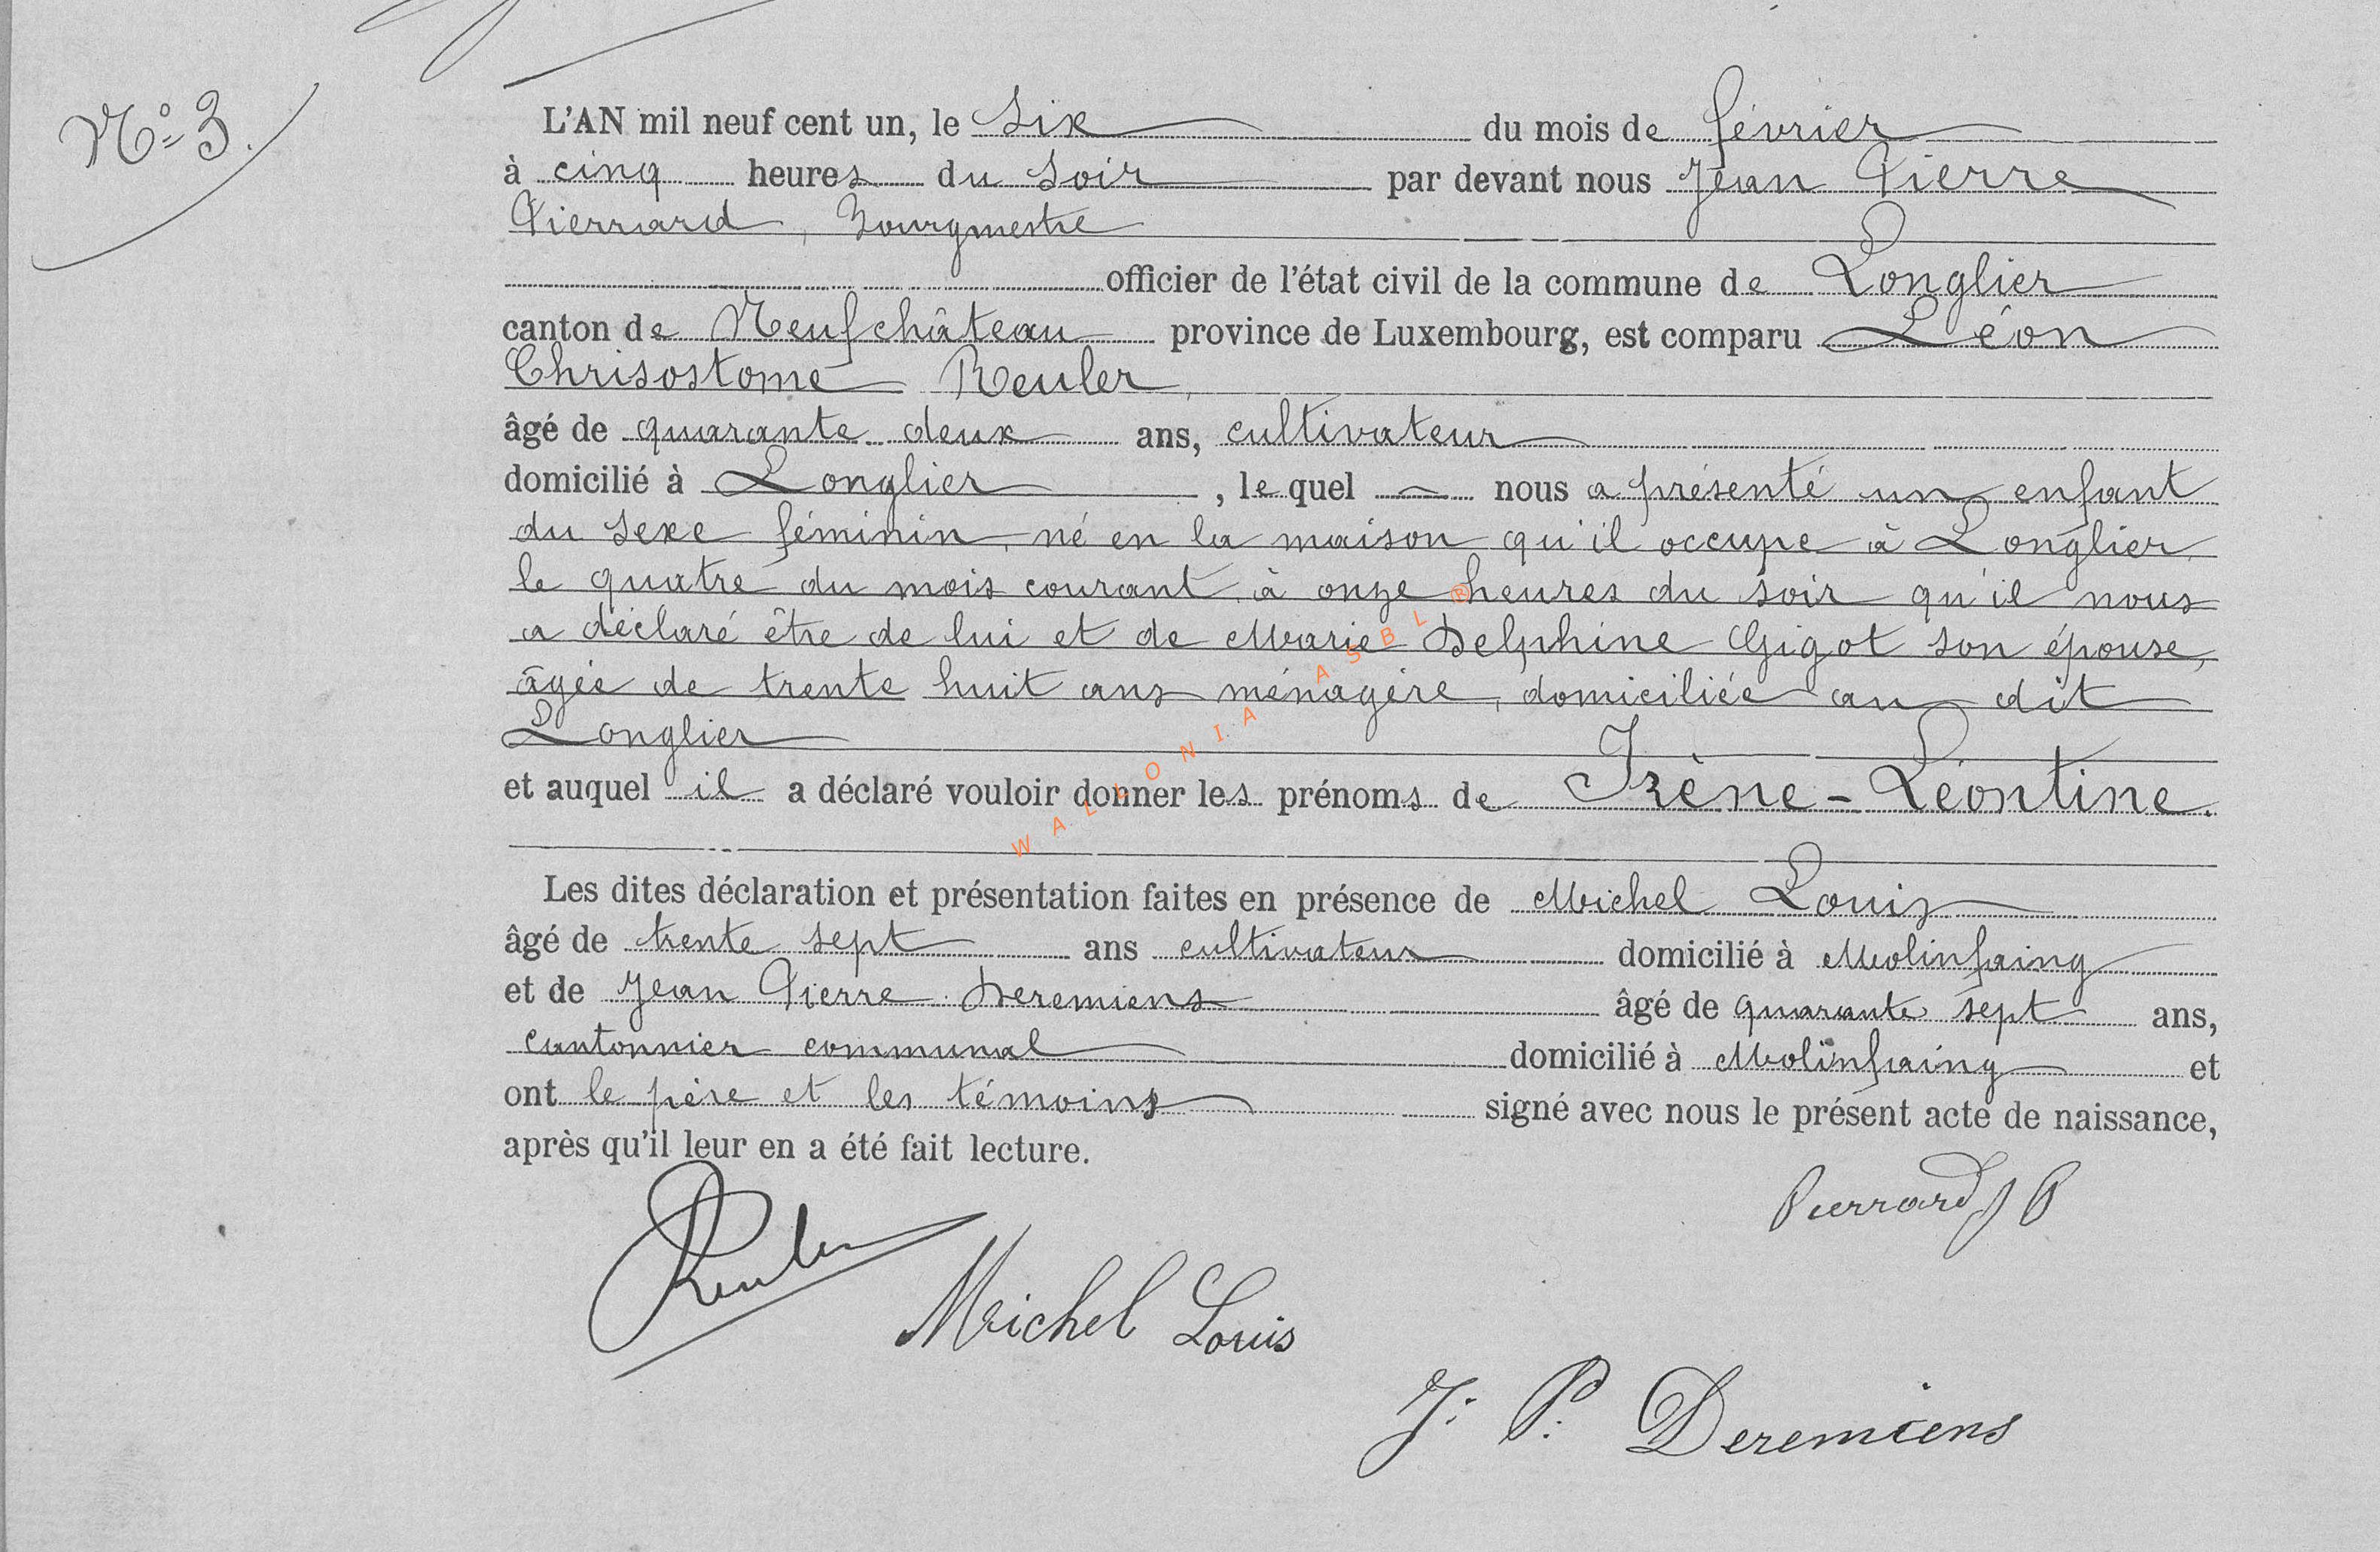 N° 3.
L'AN mil neuf cent un, le six du mois de février
à cinq heures du soir par devant nous Jean Pierre
Pierrard, bourgmestre
officier de l'état civil de la commune de Longlier
canton de Neufchâteau province de Luxembourg, est comparu Léon
Chrisostome Reuler,
âgé de quarante deux ans, cultivateur
domicilié à Longlier, le quel nous a présenté un enfant
du sexe féminin, né en la maison qu'il occupe à Longlier,
le quatre du mois courant, à onze heures du soir qu'il nous
a déclaré être de lui et de Marie Delphine Gigot son épouse,
âgée de trente huit ans ménagère, domiciliée au dit
Longlier
et auquel il a déclaré vouloir donner les prénoms de Irène-Léontine.
Les dites déclaration et présentation faites en présence de Michel Louis
âgé de trente sept ans cultivateur domicilié à Molinfaing
et de Jean Pierre Deremiens âgé de quarante sept ans,
cantonnier communal domicilié à Molinfaing et
ont le père et les témoins signé avec nous le présent acte de naissance,
après qu'il leur en a été fait lecture.
Pierrard JP
Reuler
Michel Louis
J. P. Deremiens
WALLONIA ASBL ®